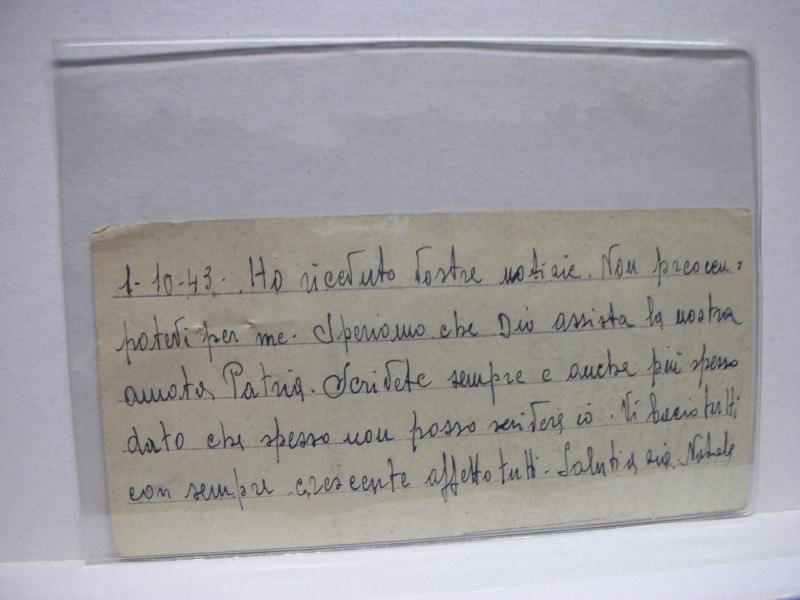 1-10-43. Ho ricevuto Vostre notizie. Non preoccu=
patevi per me. Speriamo che Dio assista la nostra
amata Patria. Scrivete sempre e anche più spesso
dato che spesso non posso scrivere io. Vi bacio tutti
con sempre crescente affetto tutti. Saluti a zia. Natale